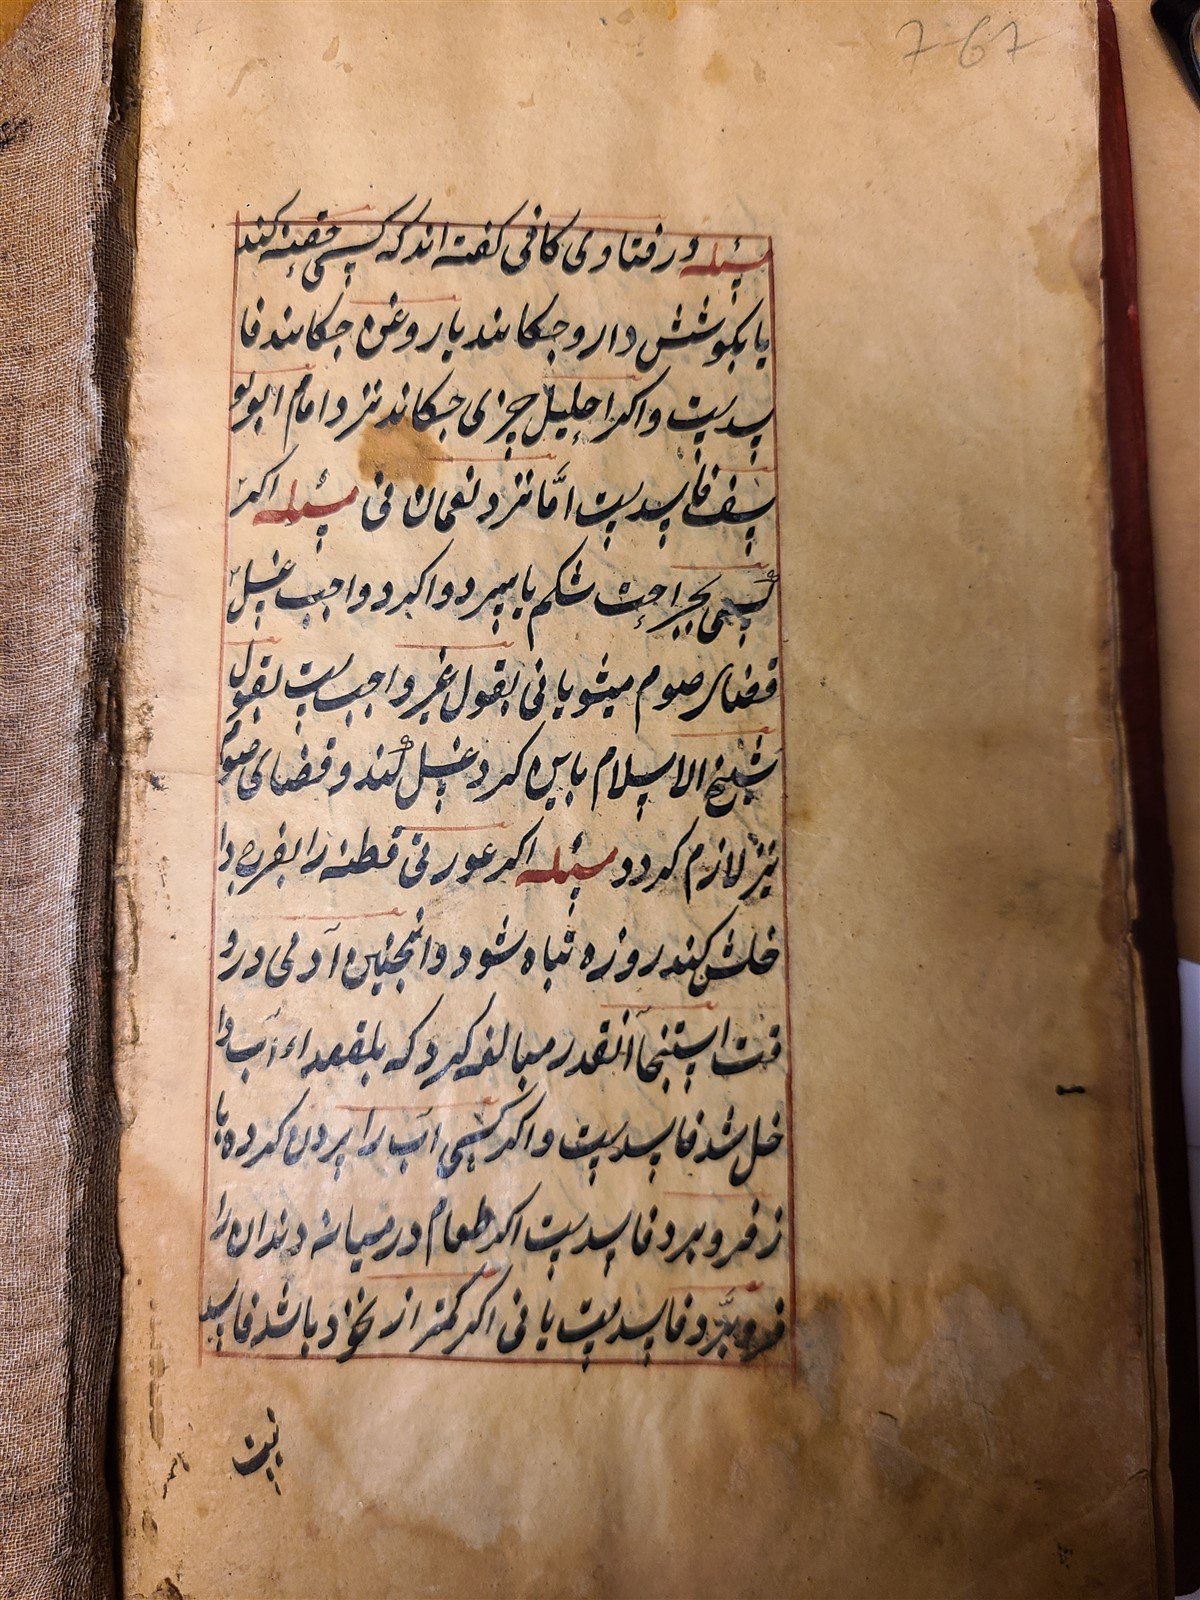 767
مسئله در فتاوی کافی گفته اند که کسی حقنه کند
یا بکوشش دارو چکانند یا روغن چکانند فا
سد ست و اگر احلیل چیزی چکاند نزد امام ابویو
سف فاسد ست امّا نزد نعمان نی مسئله اگر
کسی بجراحت شکم یا سر دوا کرد واجب غسل
قضای صوم میشو یا نی بقول غیر واجب ست بقول
شیخ الاسلام باین کرد غسل کند و قضای صوم
نیز لازم گردد مسئله اگر عورتی قطنه را بفرج دا
خلش کند روزه تباه شود و انچنین آدمی در و
قت استنجا آنقدر مبالغه کرد که بلقعداء آب دا
خل شد فاسد ست و اگر کسی آب را بردن کرده با
ز فرو برد فاسد ست اگر طعام در میانه دندان را
فرو برّد فاسد ست یا نی اگر کمتر از نخود باشد فاسد
نیست